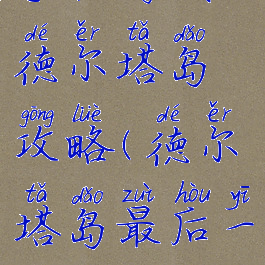 dé ěr tǎ dǎo
德尔塔岛
gōng lüè dé ěr
攻略(德尔
tǎ dǎo zuì hòu yī
塔岛最后一